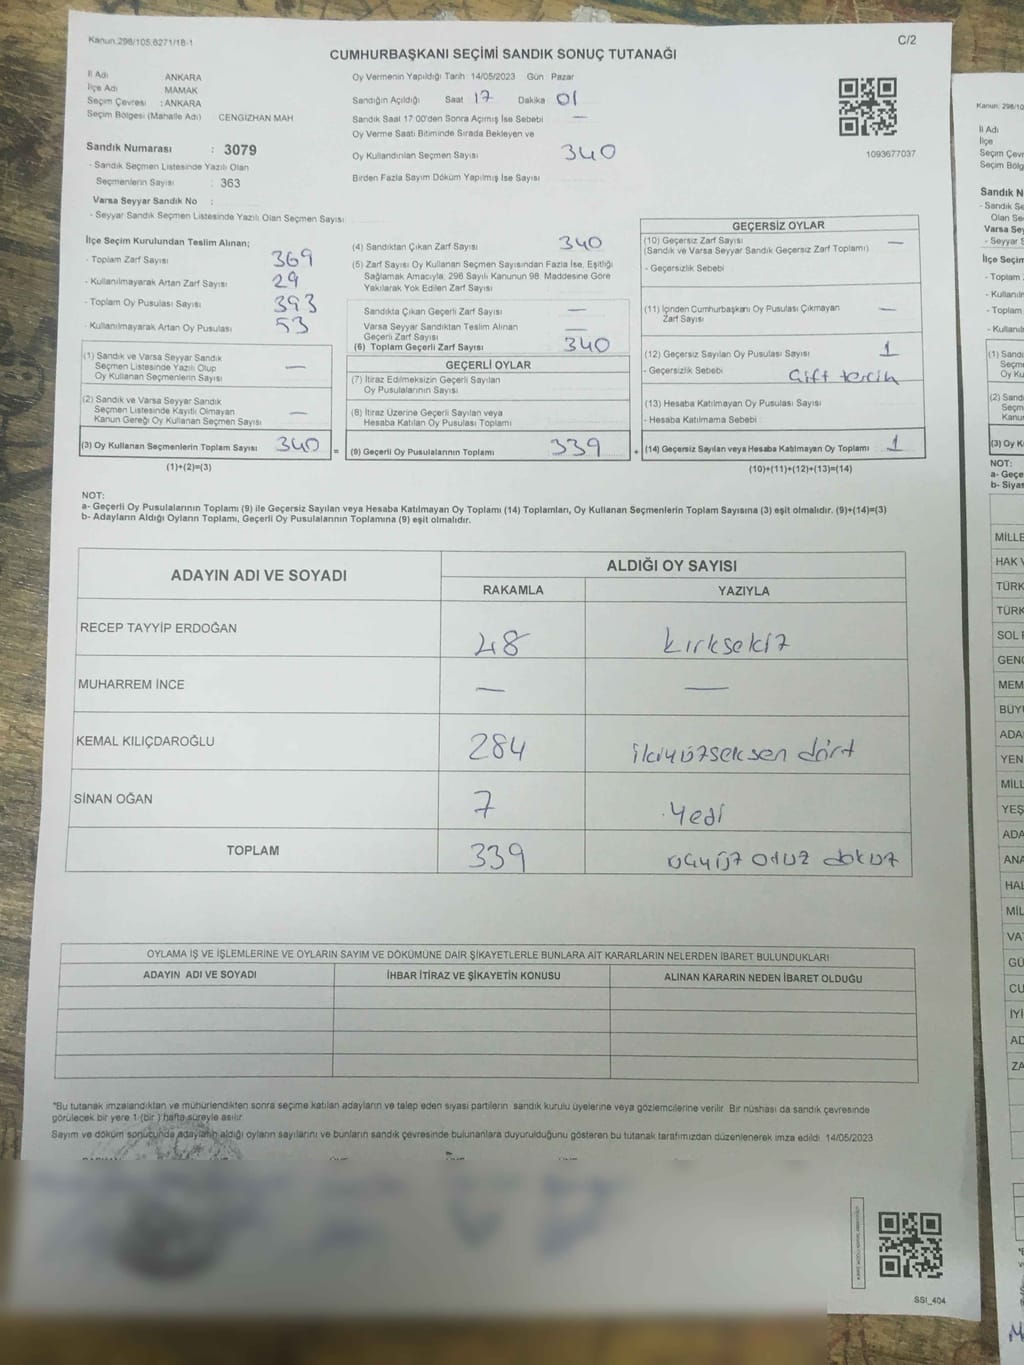 Kanun:298/105,6271/18-1
C/2
CUMHURBAŞKANI SEÇİMİ SANDIK SONUÇ TUTANAĞI
İl Adı ANKARA
İlçe Adı MAMAK
Seçim Çevresi : ANKARA
Seçim Bölgesi (Mahalle Adı) CENGİZHAN MAH
Oy Vermenin Yapıldığı Tarih 14/05/2023 Gün Pazar
Sandığın Açıldığı Saat 17 Dakika 01
Sandık Saat 17 00'den Sonra Açımış İse Sebebi —
Oy Verme Saati Bitiminde Sırada Bekleyen ve
Oy Kullandırılan Seçmen Sayısı 340
Birden Fazla Sayım Döküm Yapılmış İse Sayısı
1093677037
Sandık Numarası : 3079
- Sandık Seçmen Listesinde Yazılı Olan
Seçmenlerin Sayısı : 363
Varsa Seyyar Sandık No :
- Seyyar Sandık Seçmen Listesinde Yazılı Olan Seçmen Sayısı
İlçe Seçim Kurulundan Teslim Alınan;
- Toplam Zarf Sayısı 369
- Kullanılmayarak Artan Zarf Sayısı 29
- Toplam Oy Pusulası Sayısı 393
- Kullanılmayarak Artan Oy Pusulası 53
(1) Sandık ve Varsa Seyyar Sandık
Seçmen Listesinde Yazılı Olup
Oy Kullanan Seçmenlerin Sayısı —
(2) Sandık ve Varsa Seyyar Sandık
Seçmen Listesinde Kayıtlı Olmayan
Kanun Gereği Oy Kullanan Seçmen Sayısı —
(3) Oy Kullanan Seçmenlerin Toplam Sayısı 340 =
(1)+(2)=(3)
(4) Sandıktan Çıkan Zarf Sayısı 340
(5) Zarf Sayısı Oy Kullanan Seçmen Sayısından Fazla İse, Eşitliği
Sağlamak Amacıyla, 298 Sayılı Kanunun 98. Maddesine Göre
Yakılarak Yok Edilen Zarf Sayısı
Sandıkta Çıkan Geçerli Zarf Sayısı —
Varsa Seyyar Sandıktan Teslim Alınan
Geçerli Zarf Sayısı —
(6) Toplam Geçerli Zarf Sayısı 340
GEÇERLİ OYLAR
(7) İtiraz Edilmeksizin Geçerli Sayılan
Oy Pusulalarının Sayısı
(8) İtiraz Üzerine Geçerli Sayılan veya
Hesaba Katılan Oy Pusulası Toplamı
(9) Geçerli Oy Pusulalarının Toplamı 339 +
GEÇERSİZ OYLAR
(10) Geçersiz Zarf Sayısı —
(Sandık ve Varsa Seyyar Sandık Geçersiz Zarf Toplamı)
- Geçersizlik Sebebi
(11) İçinden Cumhurbaşkanı Oy Pusulası Çıkmayan —
Zarf Sayısı
(12) Geçersiz Sayılan Oy Pusulası Sayısı 1
- Geçersizlik Sebebi Çift tercih
(13) Hesaba Katılmayan Oy Pusulası Sayısı
- Hesaba Katılmama Sebebi
(14) Geçersiz Sayılan veya Hesaba Katılmayan Oy Toplamı 1
(10)+(11)+(12)+(13)=(14)
NOT:
a- Geçerli Oy Pusulalarının Toplamı (9) ile Geçersiz Sayılan veya Hesaba Katılmayan Oy Toplamı (14) Toplamları, Oy Kullanan Seçmenlerin Toplam Sayısına (3) eşit olmalıdır. (9)+(14)=(3)
b- Adayların Aldığı Oyların Toplamı, Geçerli Oy Pusulalarının Toplamına (9) eşit olmalıdır.
ADAYIN ADI VE SOYADI
ALDIĞI OY SAYISI
RAKAMLA YAZIYLA
RECEP TAYYİP ERDOĞAN 48 kırksekiz
MUHARREM İNCE — —
KEMAL KILIÇDAROĞLU 284 ikiyüzseksen dört
SİNAN OĞAN 7 yedi
TOPLAM 339 üçyüz otuz dokuz
OYLAMA İŞ VE İŞLEMLERİNE VE OYLARIN SAYIM VE DÖKÜMÜNE DAİR ŞİKAYETLERLE BUNLARA AİT KARARLARIN NELERDEN İBARET BULUNDUKLARI
ADAYIN ADI VE SOYADI İHBAR İTİRAZ VE ŞİKAYETİN KONUSU ALINAN KARARIN NEDEN İBARET OLDUĞU
*Bu tutanak imzalandıktan ve mühürlendikten sonra seçime katılan adayların ve talep eden siyasi partilerin sandık kurulu üyelerine veya gözlemcilerine verilir. Bir nüshası da sandık çevresinde
görülecek bir yere 1 (bir ) hafta süreyle asılır.
Sayım ve döküm sonucunda adayların aldığı oyların sayılarını ve bunların sandık çevresinde bulunanlara duyurulduğunu gösteren bu tutanak tarafımızdan düzenlenerek imza edildi. 14/05/2023
SSI_404
Kanun: 298/10
İl Adı
İlçe
Seçim Çevr
Seçim Bölg
Sandık N
- Sandık Se
Olan Se
Varsa Sey
- Seyyar S
İlçe Seçim
- Toplam
- Kullanılm
- Toplam
- Kullanılı
(1) Sandı
Seçm
Oy Ku
(2) Sandı
Seçm
Kanun
(3) Oy K
NOT:
a- Geçe
b- Siyas
MİLLE
HAK V
TÜRK
TÜRK
SOL F
GENÇ
MEM
BÜYÜ
ADA
YEN
MİLL
YEŞ
ADA
ANA
HAL
MİL
VA
GÜ
CU
İYİ
AD
ZA